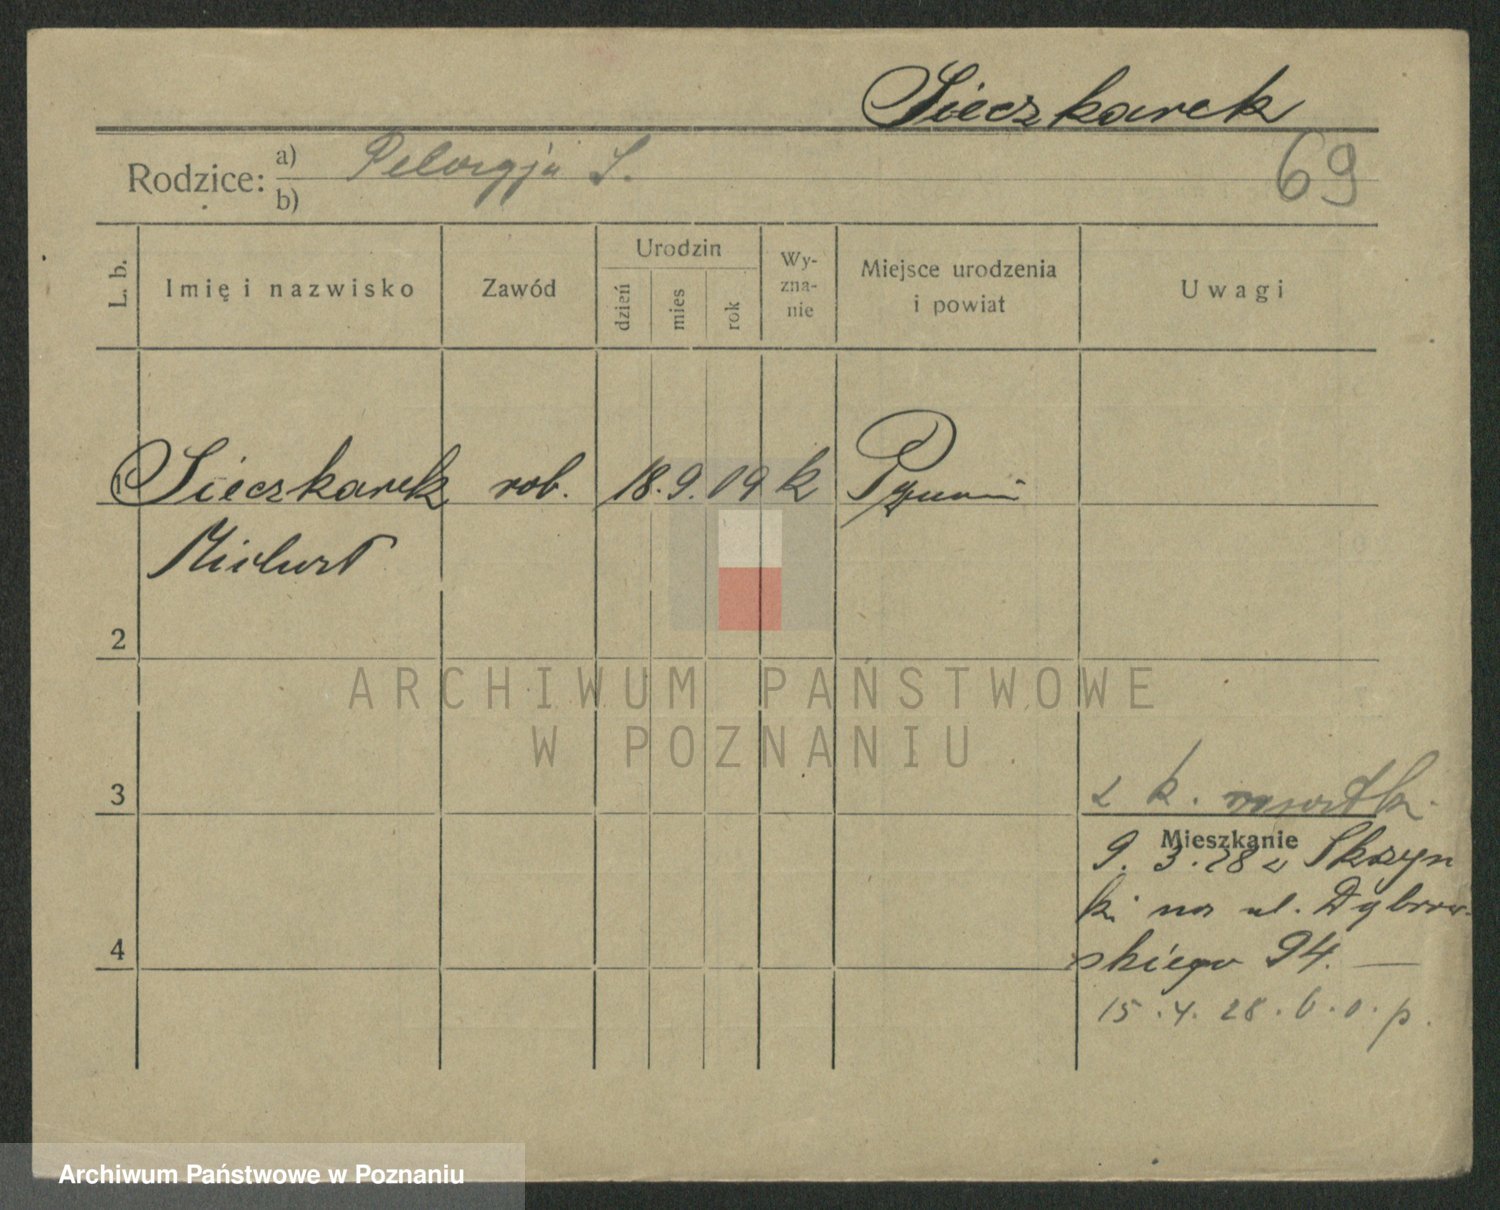 Sieczkarek
Rodzice: a) Pelagja S.
b)
69
L. b.
Imię i nazwisko
Zawód
Urodzin
dzień
mies
rok
Wy-
zna-
nie
Miejsce urodzenia
i powiat
Uwagi
Sieczkarek rob. 18. 9. 09 k
2
3
z k.
Mieszkanie
9. 3. 28 z Skrzyn
ki na ul. Dąbrow-
skiego 94. —
4
15. 4. 28. b. o. p.
ARCHIWUM PAŃSTWOWE
W POZNANIU
Archiwum Państwowe w Poznaniu